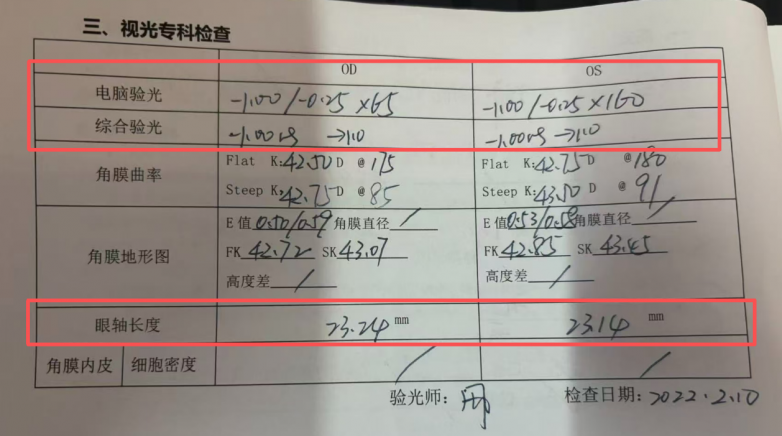 三、视光专科检查
OD OS
电脑验光 -1.00/-0.25×65 -1.00/-0.25×160
综合验光 -1.00DS →1.0 -1.00DS →1.0
角膜曲率 Flat K:42.50D @175 Flat K:42.75D @180
Steep K:42.75D @85 Steep K:43.50D @91
角膜地形图 E值0.50/0.59角膜直径/ E值0.53/0.58角膜直径/
FK 42.72 SK 43.07 FK 42.85 SK 43.45
高度差/ 高度差/
眼轴长度 23.24mm 23.14mm
角膜内皮 细胞密度 / /
验光师: 检查日期:2022.2.10